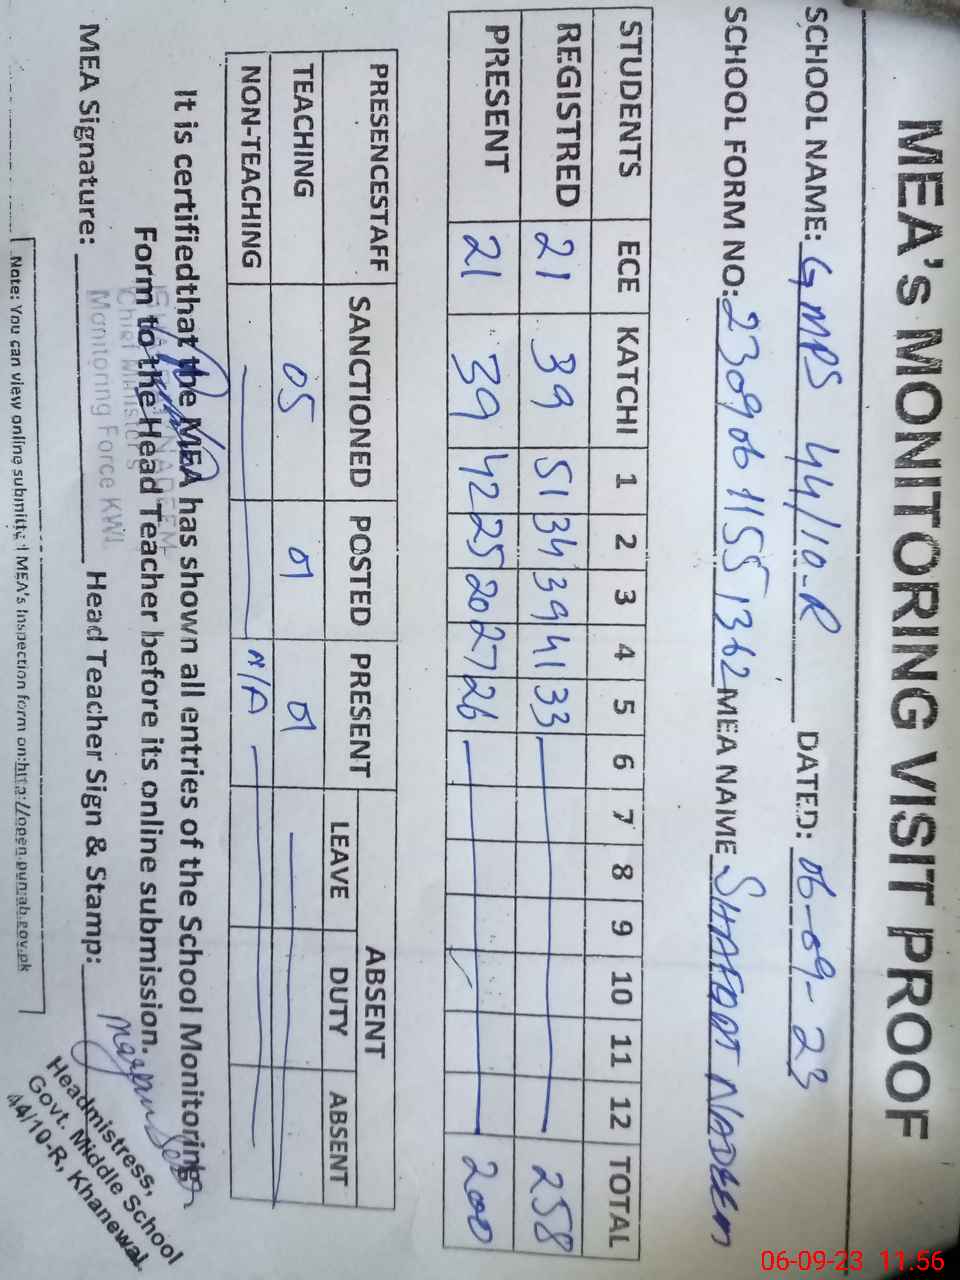 MEA's MONITORING VISIT PROOF
SCHOOL NAME: GMPS 44/10-R DATED: 06-09-23
SCHOOL FORM NO: 23090611551362 MEA NAME SHAFQAT NADEEM
STUDENTS ECE KATCHI 1 2 3 4 5 6 7 8 9 10 11 12 TOTAL
REGISTRED 21 39 51 34 39 41 33 258
PRESENT 21 39 42 25 20 27 26 200
PRESENCESTAFF SANCTIONED POSTED PRESENT ABSENT
LEAVE DUTY ABSENT
TEACHING 05 01 01
NON-TEACHING N/A
It is certifiedthat the MEA has shown all entries of the School Monitoring
Form to the Head Teacher before its online submission.
NADEEM
Chief Minister's
Monitoring Force KWL
MEA Signature: Head Teacher Sign & Stamp:
Headmistress,
Govt. Middle School
44/10-R, Khanewal.
Note: You can view online submitted MEA's Inspection form on:http://open.punjab.gov.pk
06-09-23 11.56